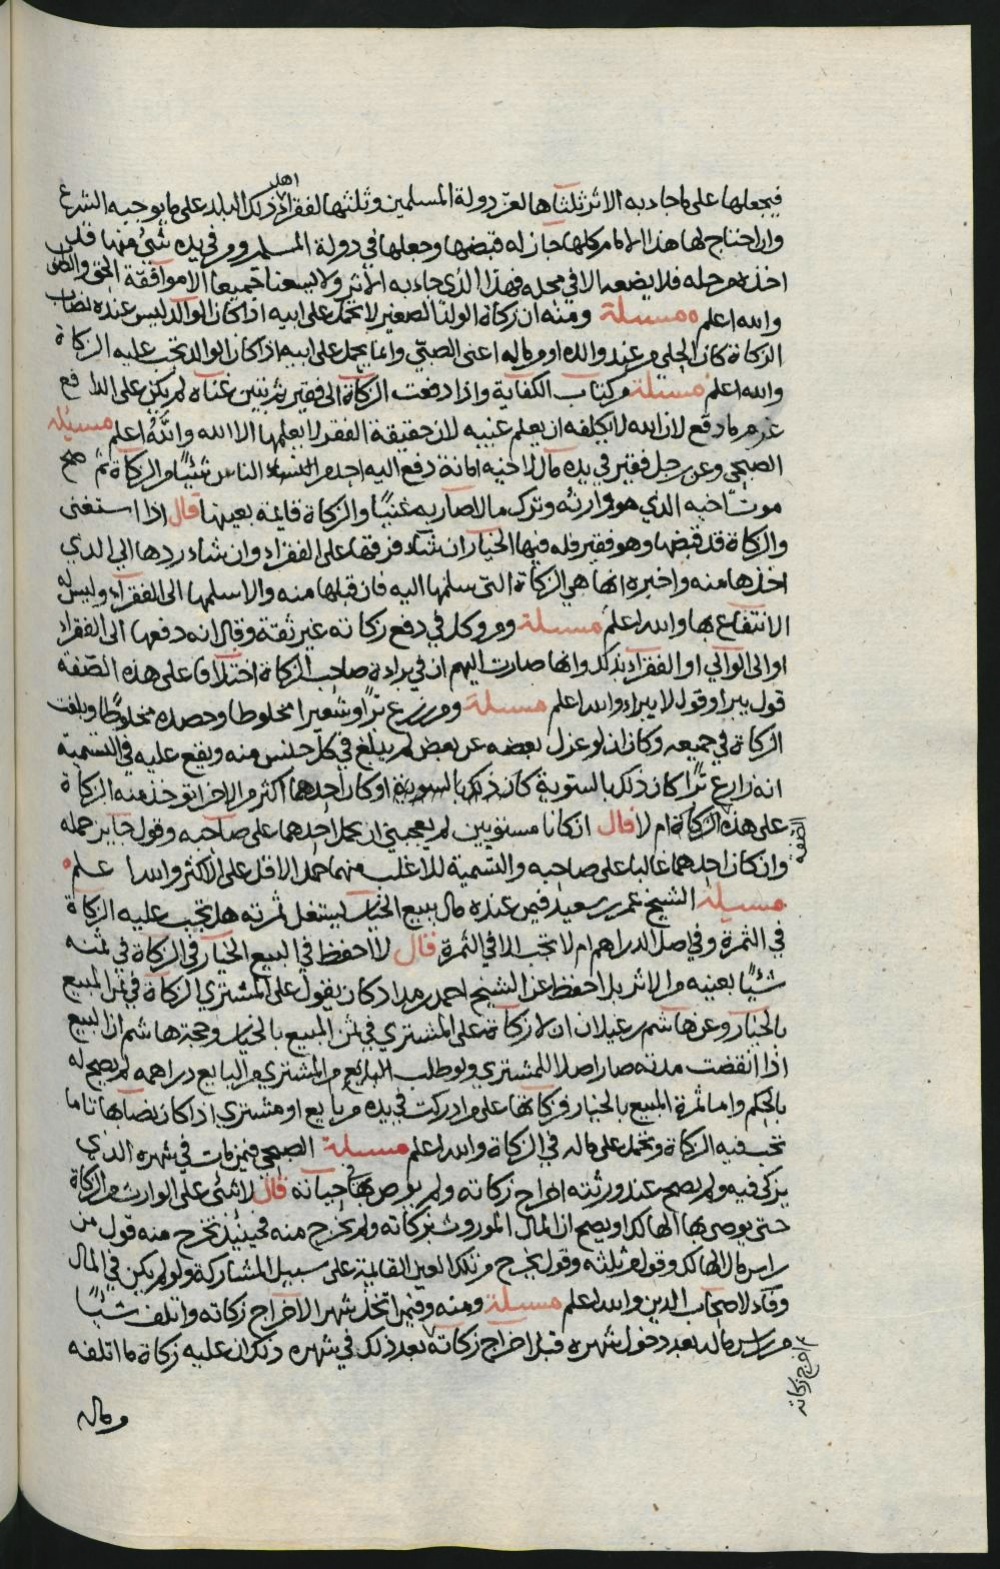 فيجعلها على ما جاء به الاثر ثلثاها لعز دولة المسلمين وثلثها لفقراء اهل ذلك البلد على ما يوجبه الشرع
وان احتاج لها هذا الامام كلها جاز له قبضها وجعلها في دولة المسلمين ومن في يده شئ منها قلت
اخذه من حله فلا يضعه الا في محله فهذا الذي جاء به الاثر ولا يسعنا جميعا الا موافقة الحق
والله اعلم مسئلة ومنه ان زكاة الولد الصغير لا تحمل على ابيه اذا كان الوالد ليس عنده نصاب
الزكاة كان الحلي من عند والده او من ماله اعنى الصبي وانما يحمل على ابيه اذا كان الوالد تجب عليه الزكاة
والله اعلم مسئلة من كتاب الكفاية واذا دفعت الزكاة الى فقير ثم تبين غناه لم يكن على الدافع
غرم ما دفع لان الله لا يكلفه ان يعلم غيبه لان حقيقة الفقر لا يعلمها الا الله والله اعلم مسئلة
الصبحي وعن رجل فقير في يده مال لاخيه امانة دفع اليه احد من الناس شيئا من الزكاة ثم صح
موت اخيه الذي هو وارثه وترك مالا صار به غنيا والزكاة قايمة بعينها قال اذا استغنى
والزكاة قد قبضها وهو فقير فله فيها الخيار ان شاء فرقها على الفقراء وان شاء ردها الى الذي
اخذها منه واخبره انها هي الزكاة التى سلمها اليه فان قبلها منه والا سلمها الى الفقراء وليس له
الانتفاع بها والله اعلم مسئلة ومن وكل في دفع زكاته غير ثقة وقال انه دفعها الى الفقراء
او الى الوالي او الفقراء بذلك وانها صارت اليهم ان في براءة صاحب الزكاة اختلافا على هذه الصفة
قول يبرا وقول لا يبراء والله اعلم مسئلة ومن زرع برًا وشعيرا مخلوطا وحصده مخلوطًا وبلغت
الزكاة في جميعه وكان ان لو عزل بعضه عن بعض لم يبلغ في كل جنس منه ويقع عليه في التسمية
انه زارع برًا كان ذلك بالسوية كان ذلك بالسوية او كان احدهما اكثر من الاخر اتوخذ منه الزكاة
على هذه الصفة ام لا قال ان كانا مستويين لم يعجبني ان يحمل احدهما على صاحبه وقول جايز حمله
وان كان احدهما غالبا على صاحبه والتسمية للاغلب منهما حمل الاقل على الاكثر والله اعلم
مسئلة الشيخ عمر بن سعيد فيمن عنده مال ببيع الخيار يستغل ثمرته هل تجب عليه الزكاة
في الثمرة وفي اصل الدراهم ام لا تجب الا في الثمرة قال لا احفظ في البيع الخيار في الزكاة في ثمنه
شئيًا بعينه من الاثر بل احفظ عن الشيخ احمد بن مداد كان يقول على المشتري الزكاة في ثمن المبيع
بالخيار وعن هاشم بن غيلان ان لا زكاة على المشتري في ثمن المبيع بالخيار وحجة هاشم ان البيع
اذا انقضت مدته صار اصلا للمشتري ولو طلب المشتري من البايع دراهمه لم يصح له
بالحكم واما ثمرة المبيع بالخيار فزكاتها على من ادركت في يده من بايع او مشتري اذا كان نصابها تاما
تجب فيه الزكاة وتحمل على ماله في الزكاة والله اعلم مسئلة الصبحي فيمن مات في شهره الذي
يزكى فيه ولم يصح عند ورثته اخراج زكاته ولم يوص بها في حياته قال لا شئى على الوارث من الزكاة
حتى يوصى بها الهالك او يصح ان المال الموروث بزكاته ولم تخرج منه فحينئذ تخرج منه قول من
راس مال الهالك وقول من ثلثه وقول تخرج من تلك العين القايمة على سبيل المشاركة ولو لم يكن في المال
وفاء لاصحاب الدين والله اعلم مسئلة ومنه وفيمن اتخذ شهرا لاخراج زكاته واتلف شيئًا
من راس ماله بعد دخول شهره قبل اخراج زكاته ثم اخرج زكاته بعد ذلك في شهره ذلك ان عليه زكاة ما اتلفه
وماله